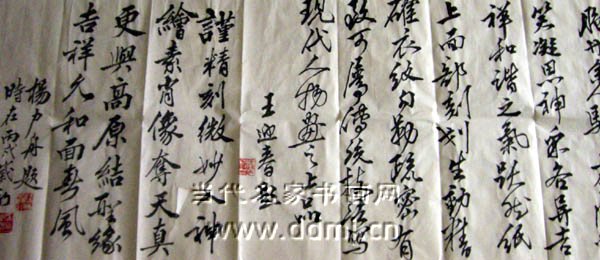 笑凝思神采各异吉
祥和谐之氣跃然纸
上面部刻划生動精
確衣紋勾勒疏密有
致可屬傳統
現代人物畫之上品
王迎春題
謹精刻微妙入神
繪素肖像奪天真
更興高原結聖緣
吉祥允和面春風
楊力舟題
時在丙戌歲
当代名家书画网
www.ddmj.cn